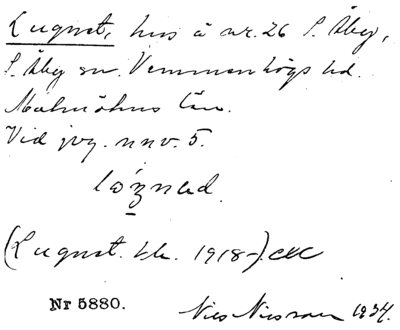 Lugnet, hus å nr. 26 S. Åby,
S. Åby sn. Vemmenhögs hd.
Malmöhus län.
Vid jvg. nnv. 5.
(Lugnet. bb. 1918-).
Nr 5880. Nils Nilsson 1934.